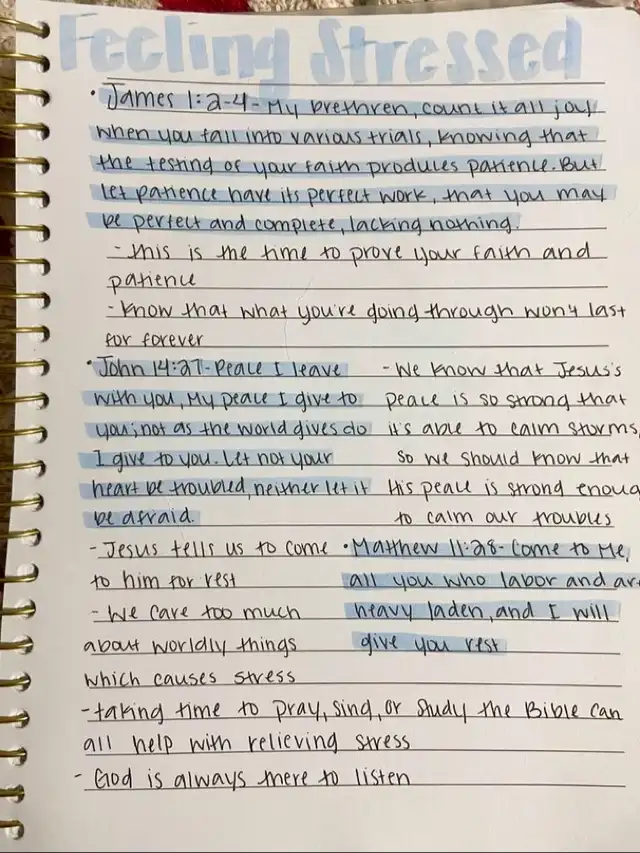 Feeling Stressed
• James 1:2-4 - My brethren, count it all joy
when you fall into various trials, knowing that
the testing of your faith produces patience. But
let patience have its perfect work, that you may
be perfect and complete, lacking nothing.
- this is the time to prove your faith and
patience
- know that what you're going through won't last
for forever
• John 14:27 - Peace I leave
with you, My peace I give to
you; not as the world gives do
I give to you. Let not your
heart be troubled, neither let it
be afraid.
- We know that Jesus's
peace is so strong that
it's able to calm storms,
so we should know that
His peace is strong enoug
to calm our troubles
- Jesus tells us to come
to him for rest
- We care too much
about worldly things
which causes stress
• Matthew 11:28 - Come to Me,
all you who labor and are
heavy laden, and I will
give you rest
- taking time to pray, sing, or study the Bible can
all help with relieving stress
- God is always there to listen